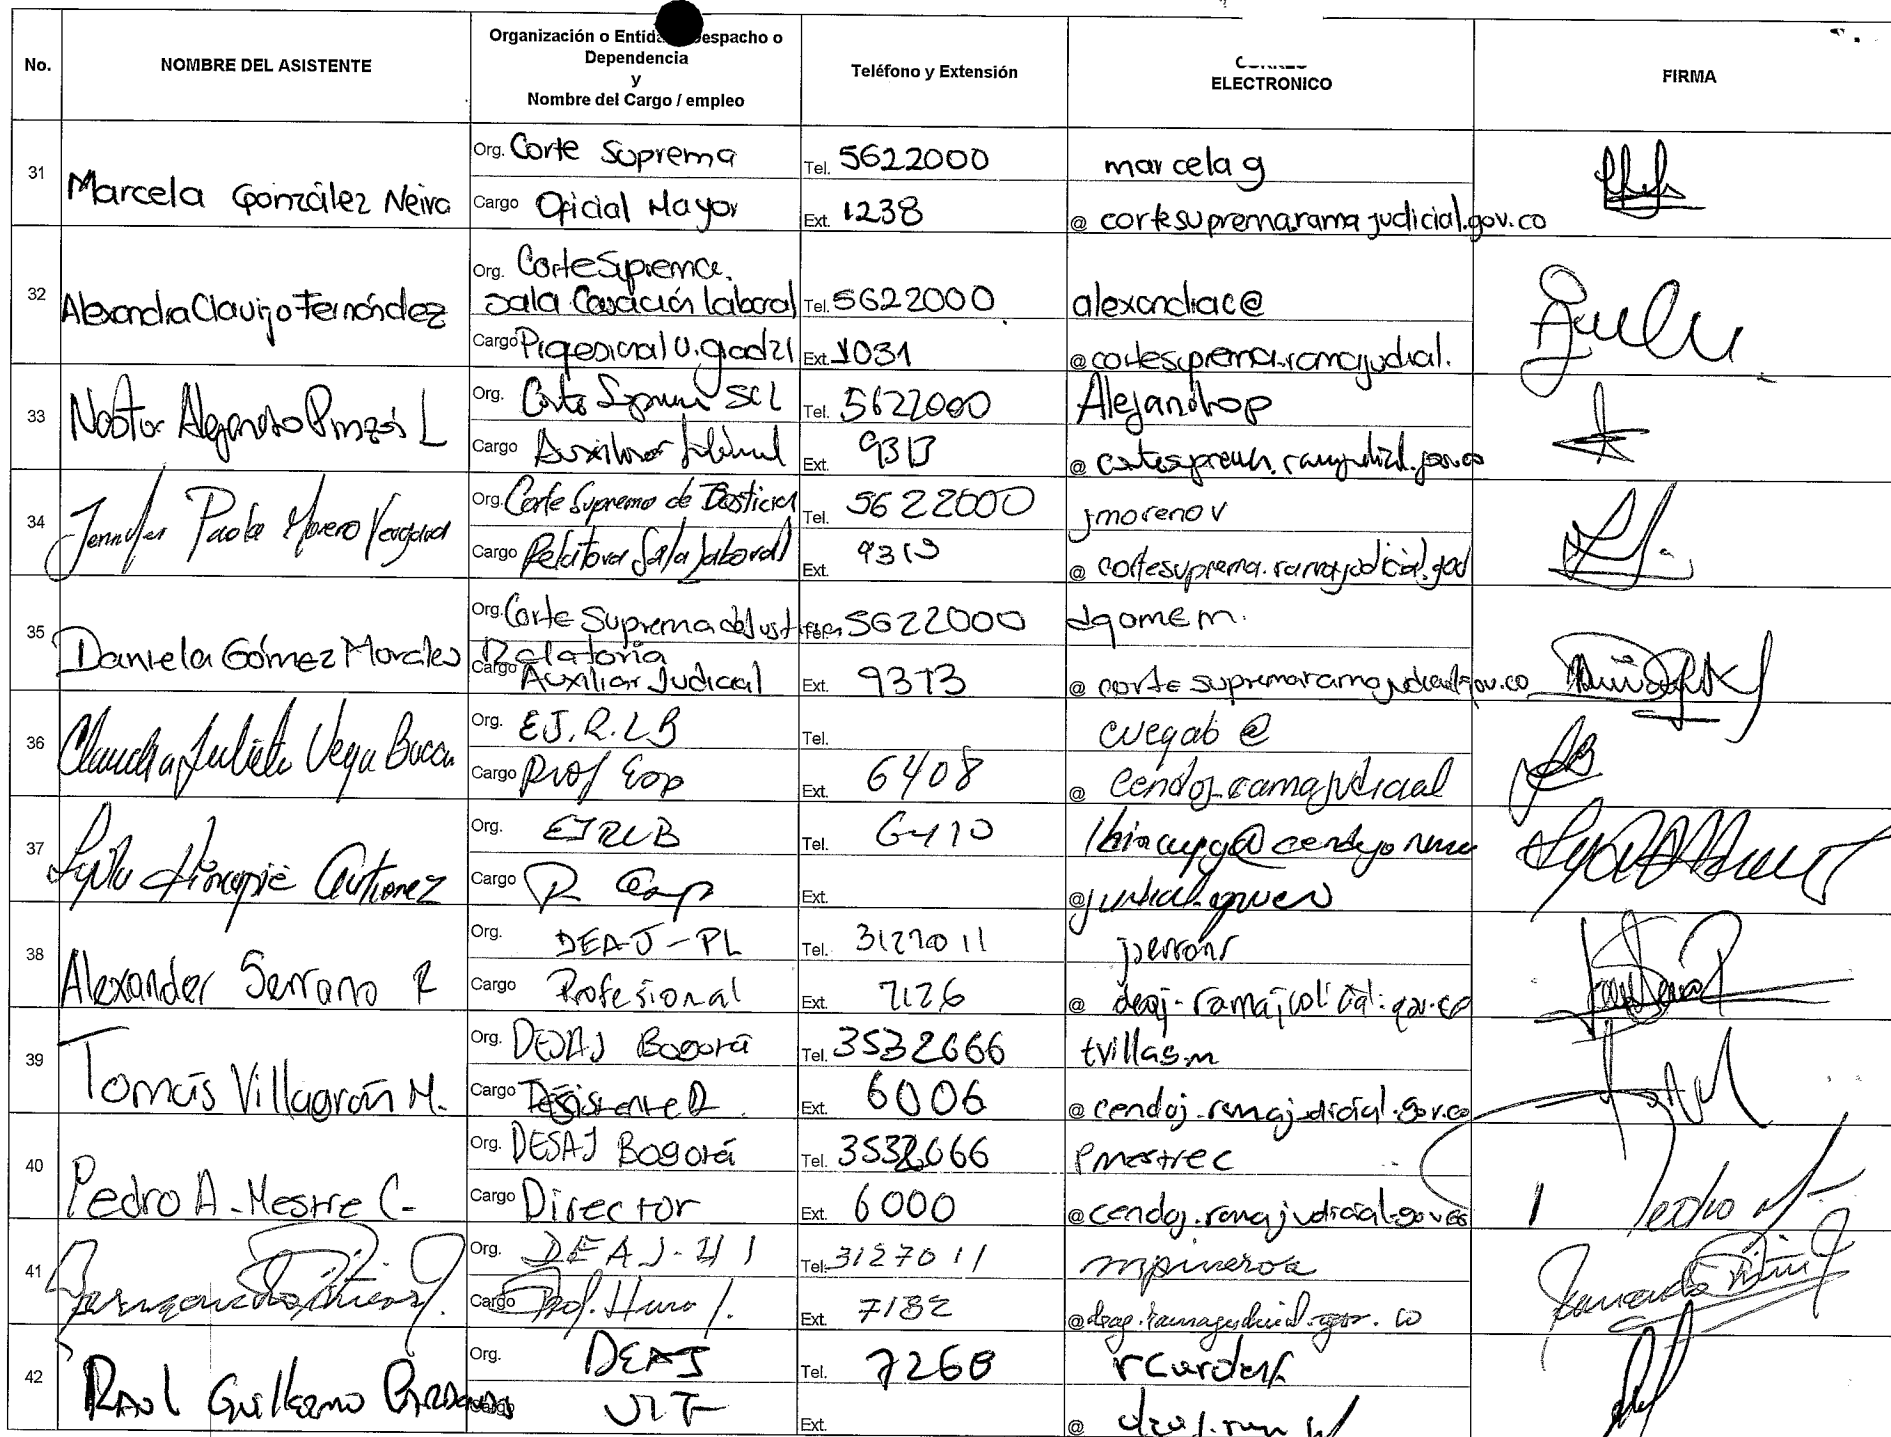 No.
NOMBRE DEL ASISTENTE
Organización o Entida Despacho o
Dependencia
y
Nombre del Cargo / empleo
Teléfono y Extensión
ELECTRONICO
FIRMA
31
Marcela González Neira
Org. Corte Suprema
Cargo Oficial Mayor
Tel. 5622000
Ext. 1238
marcela g
@ cortesuprema.ramajudicial.gov.co
32
Alexandra Clavijo Fernández
Org. Corte Suprema.
Sala Casación Laboral
Cargo Profesional U. grad 21
Tel. 5622000
Ext. 1031
alexandrac@
@cortesuprema.ramajudial.
33
Nestor Alejandro Pinzón L
Org. Corte Suprema SCL
Cargo Auxiliar Judicial
Tel. 5622000
Ext. 9313
Alejandrop
@ cortesuprema.ramajudicial.gov.co
34
Jennifer Paola Moreno Vergara
Org. Corte Suprema de Justicia
Cargo Relatora Sala Laboral
Tel. 5622000
Ext. 9313
jmorenov
@ cortesuprema.ramajudicial.god
35
Daniela Gómez Morales
Org. Corte Suprema de Justicia
Relatoria
Cargo Auxiliar Judicial
Tel. 5622000
Ext. 9313
dgomem.
@ cortesupremaramajudicial.gov.co
36
Claudia Julieta Vega Bacca
Org. EJ.R.LB
Cargo Prof Esp
Tel.
Ext. 6408
cvegab @
@ cendoj.ramajudicial
37
Hincapié Gutierrez
Org. EJRLB
Cargo P. Esp
Tel. 6410
Ext.
38
Alexander Serrano R
Org. DEAJ-PL
Cargo Profesional
Tel. 3127011
Ext. 7126
@ deaj.ramajudicial.gov.co
39
Tomás Villagrán M.
Org. DESAJ Bogotá
Cargo Asistente D.
Tel. 3532666
Ext. 6006
tvillasm
@ cendoj.ramajudicial.gov.co
40
Pedro A. Mestre C.
Org. DESAJ Bogotá
Cargo Director
Tel. 3532666
Ext. 6000
Pmestrec
@cendoj.ramajudicial.gov.co
41
Org. DEAJ-
Cargo Prof.
Tel. 3127011
Ext. 7182
mpineroa
42
Raul Guillermo
Org. DEAJ
Cargo
Tel. 7268
Ext.
@